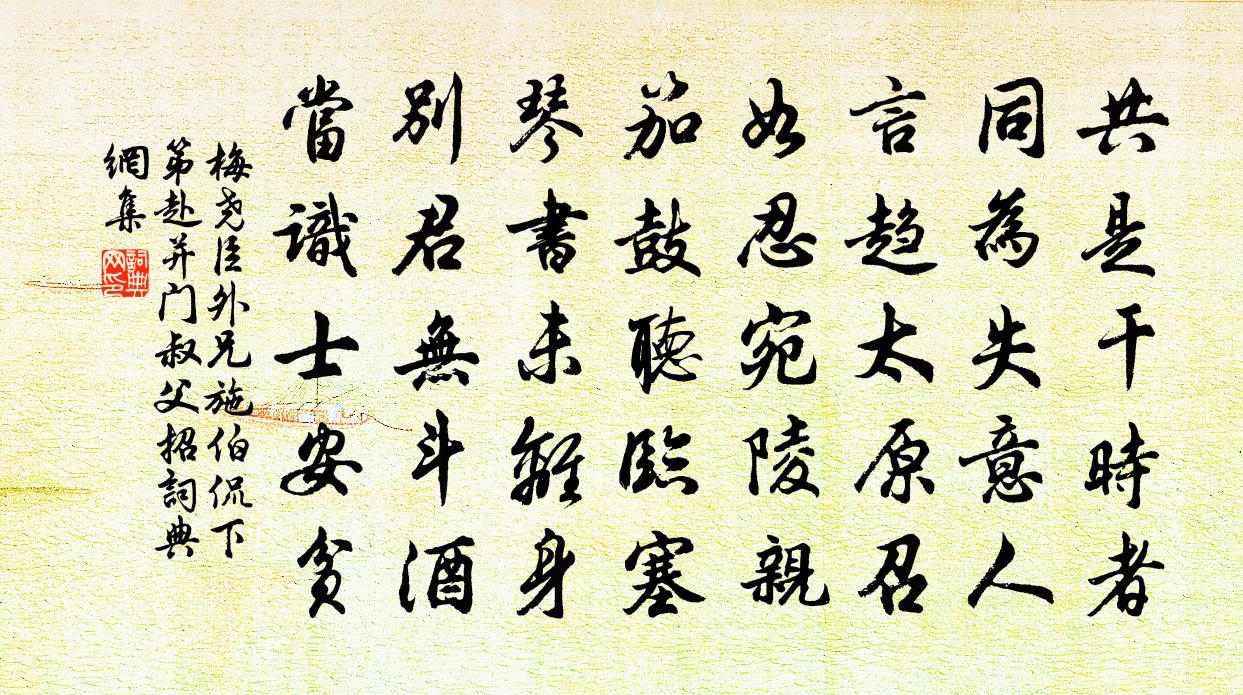 共是干時者
同為失意人
言趨太原召
如忍宛陵親
笳鼓聽臨塞
琴書未離身
別君無斗酒
當識士安貧
梅尧臣外兄施伯侃下
第赴并门叔父招詞典
網集
詞典网印